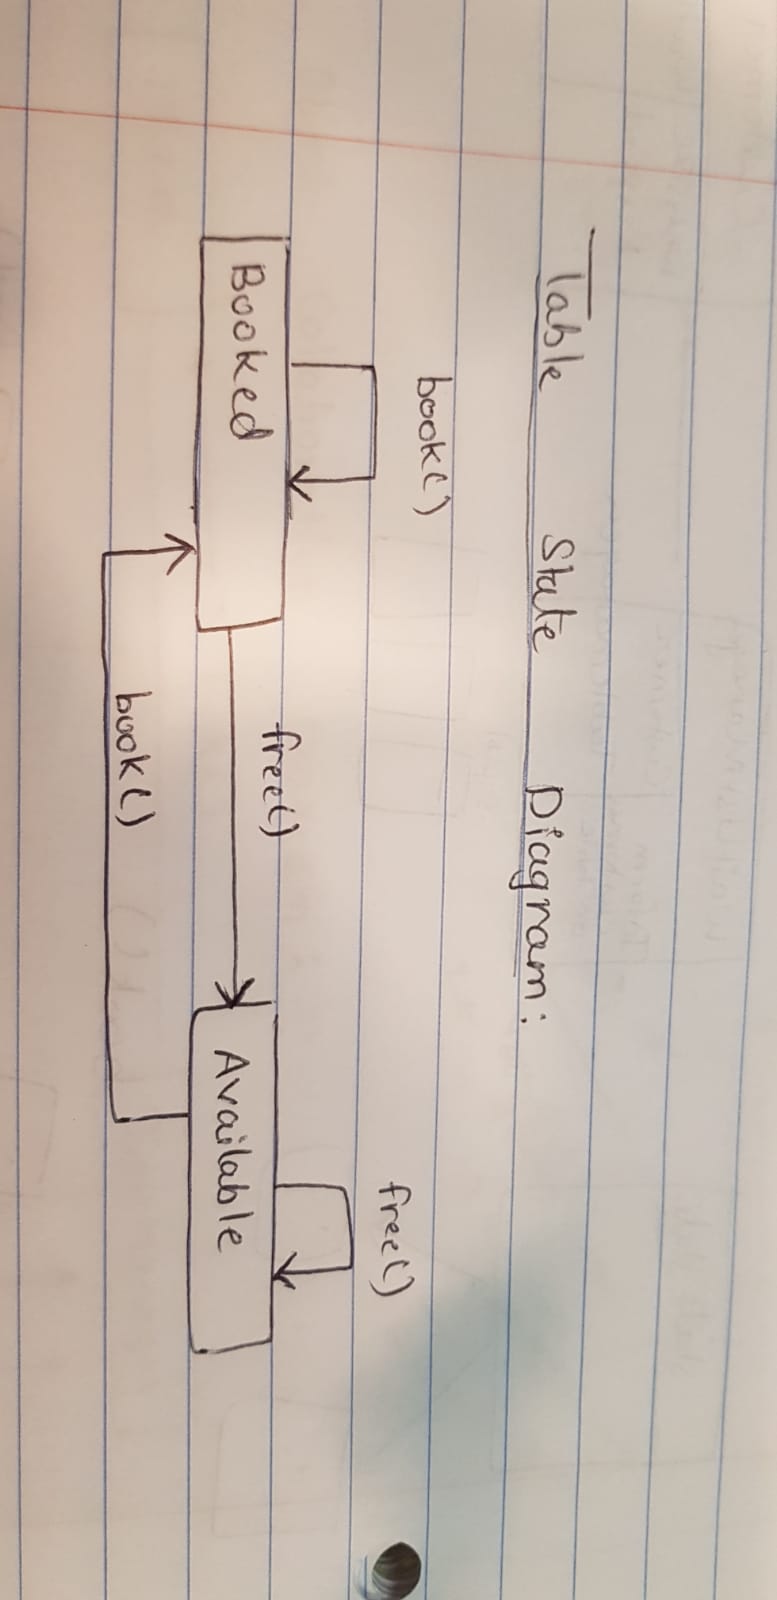 Table State Diagram:
book()
free()
Booked
free()
Available
book()